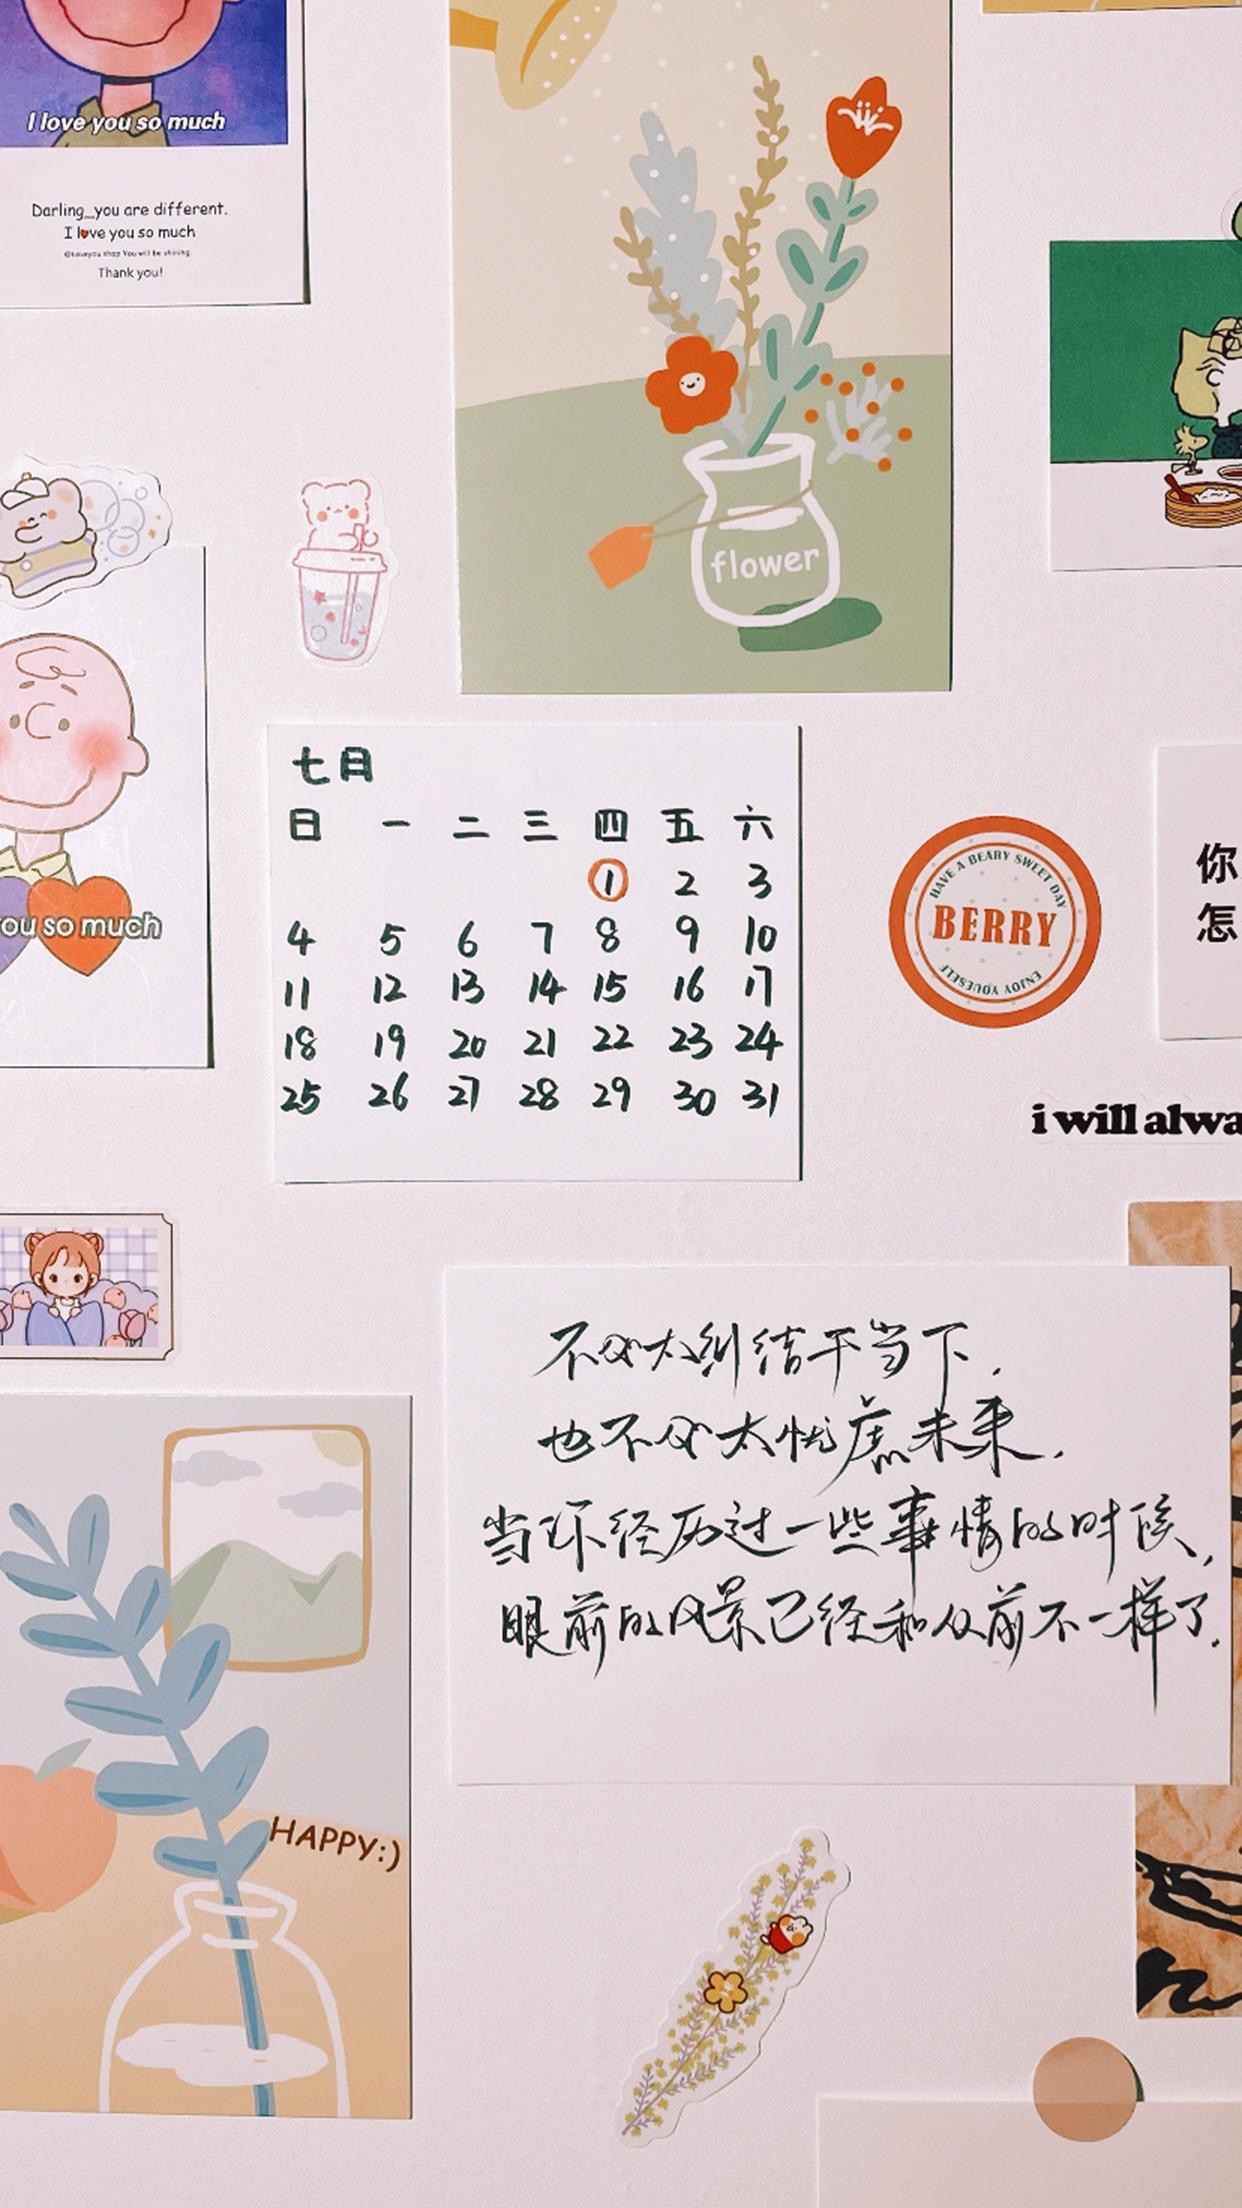 I love you so much
Darling__you are different.
I love you so much
@loveyou shop You will be shining.
Thank you!
flower
ou so much
七月
日 一 二 三 四 五 六
1 2 3
4 5 6 7 8 9 10
11 12 13 14 15 16 17
18 19 20 21 22 23 24
25 26 27 28 29 30 31
HAVE A BEARY SWEET DAY
BERRY
ENJOY YOUESELF
你
怎
i will alwa
不必太纠结于当下,
也不必太忧虑未来.
当你经历过一些事情的时候,
眼前的风景已经和从前不一样了.
HAPPY:)